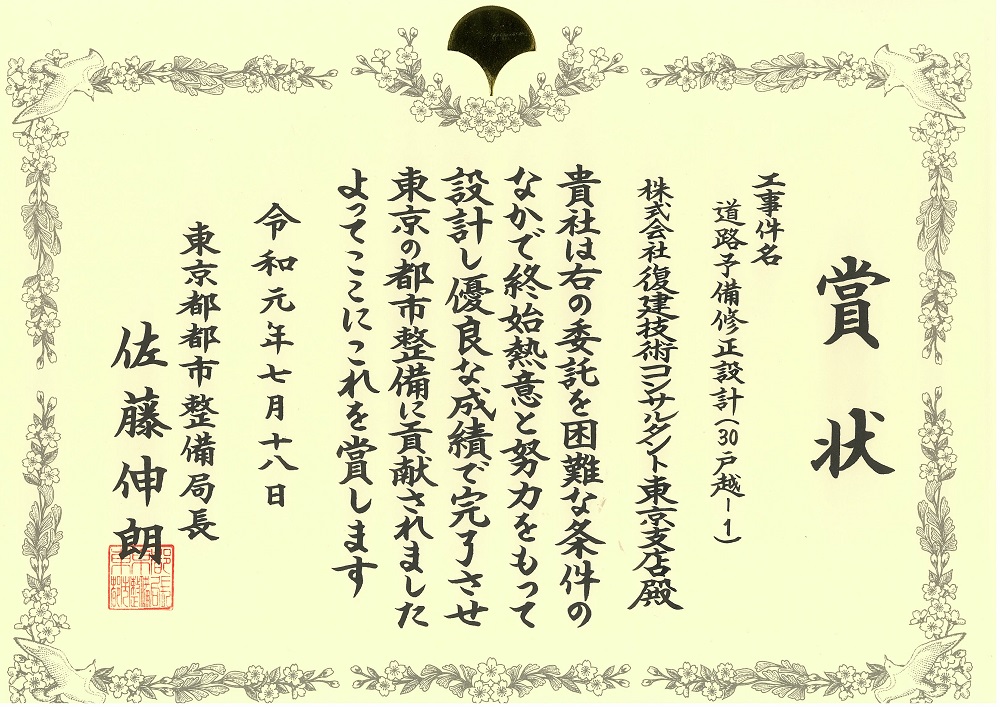 賞状
工事件名
道路予備修正設計(30戸越-1)
株式会社復建技術コンサルタント東京支店殿
貴社は右の委託を困難な条件の
なかで終始熱意と努力をもって
設計し優良な成績で完了させ
東京の都市整備に貢献されました
よってここにこれを賞します
令和元年七月十八日
東京都都市整備局長
佐藤伸朗